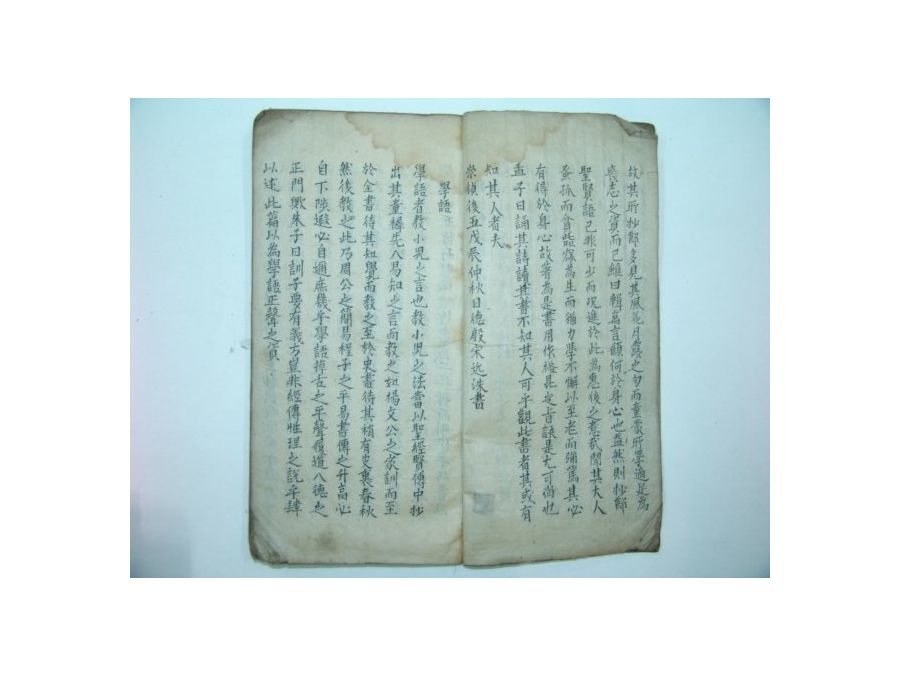 故其所抄節多見其風花月露之句而童蒙所學適是為
喪志之資而已雖曰輯萬言顧何於身心也益然則抄節
聖賢語已非可少而况進於此為惠後之意哉聞其夫人
蚤孤而貧能為生而猶力學不懈以至老而彌篤其心
有得於身心故著為是書用作是定旨訣是尤可尚也
孟子曰誦其詩讀其書不知其人可乎觀此書者其或有
知其人者夫
崇禎後五戊辰仲秋日德殷宋近洙書
學語
學語者教小兒之言也教小兒之法當以聖經賢傳中抄
出其童穉先入易知之言而教之如楊文公之家訓而至
於全書待其知覺而教之至於史書待其稍有皮裏春秋
然後教之此乃周公之簡易程子之平易書傳之升高必
自下陟遐必自邇庶幾乎學語掉古之平聲履道八德之
正門歟朱子曰訓子要有義方豈非經傳性理之說乎肆
以述此篇以為學語正聲之資